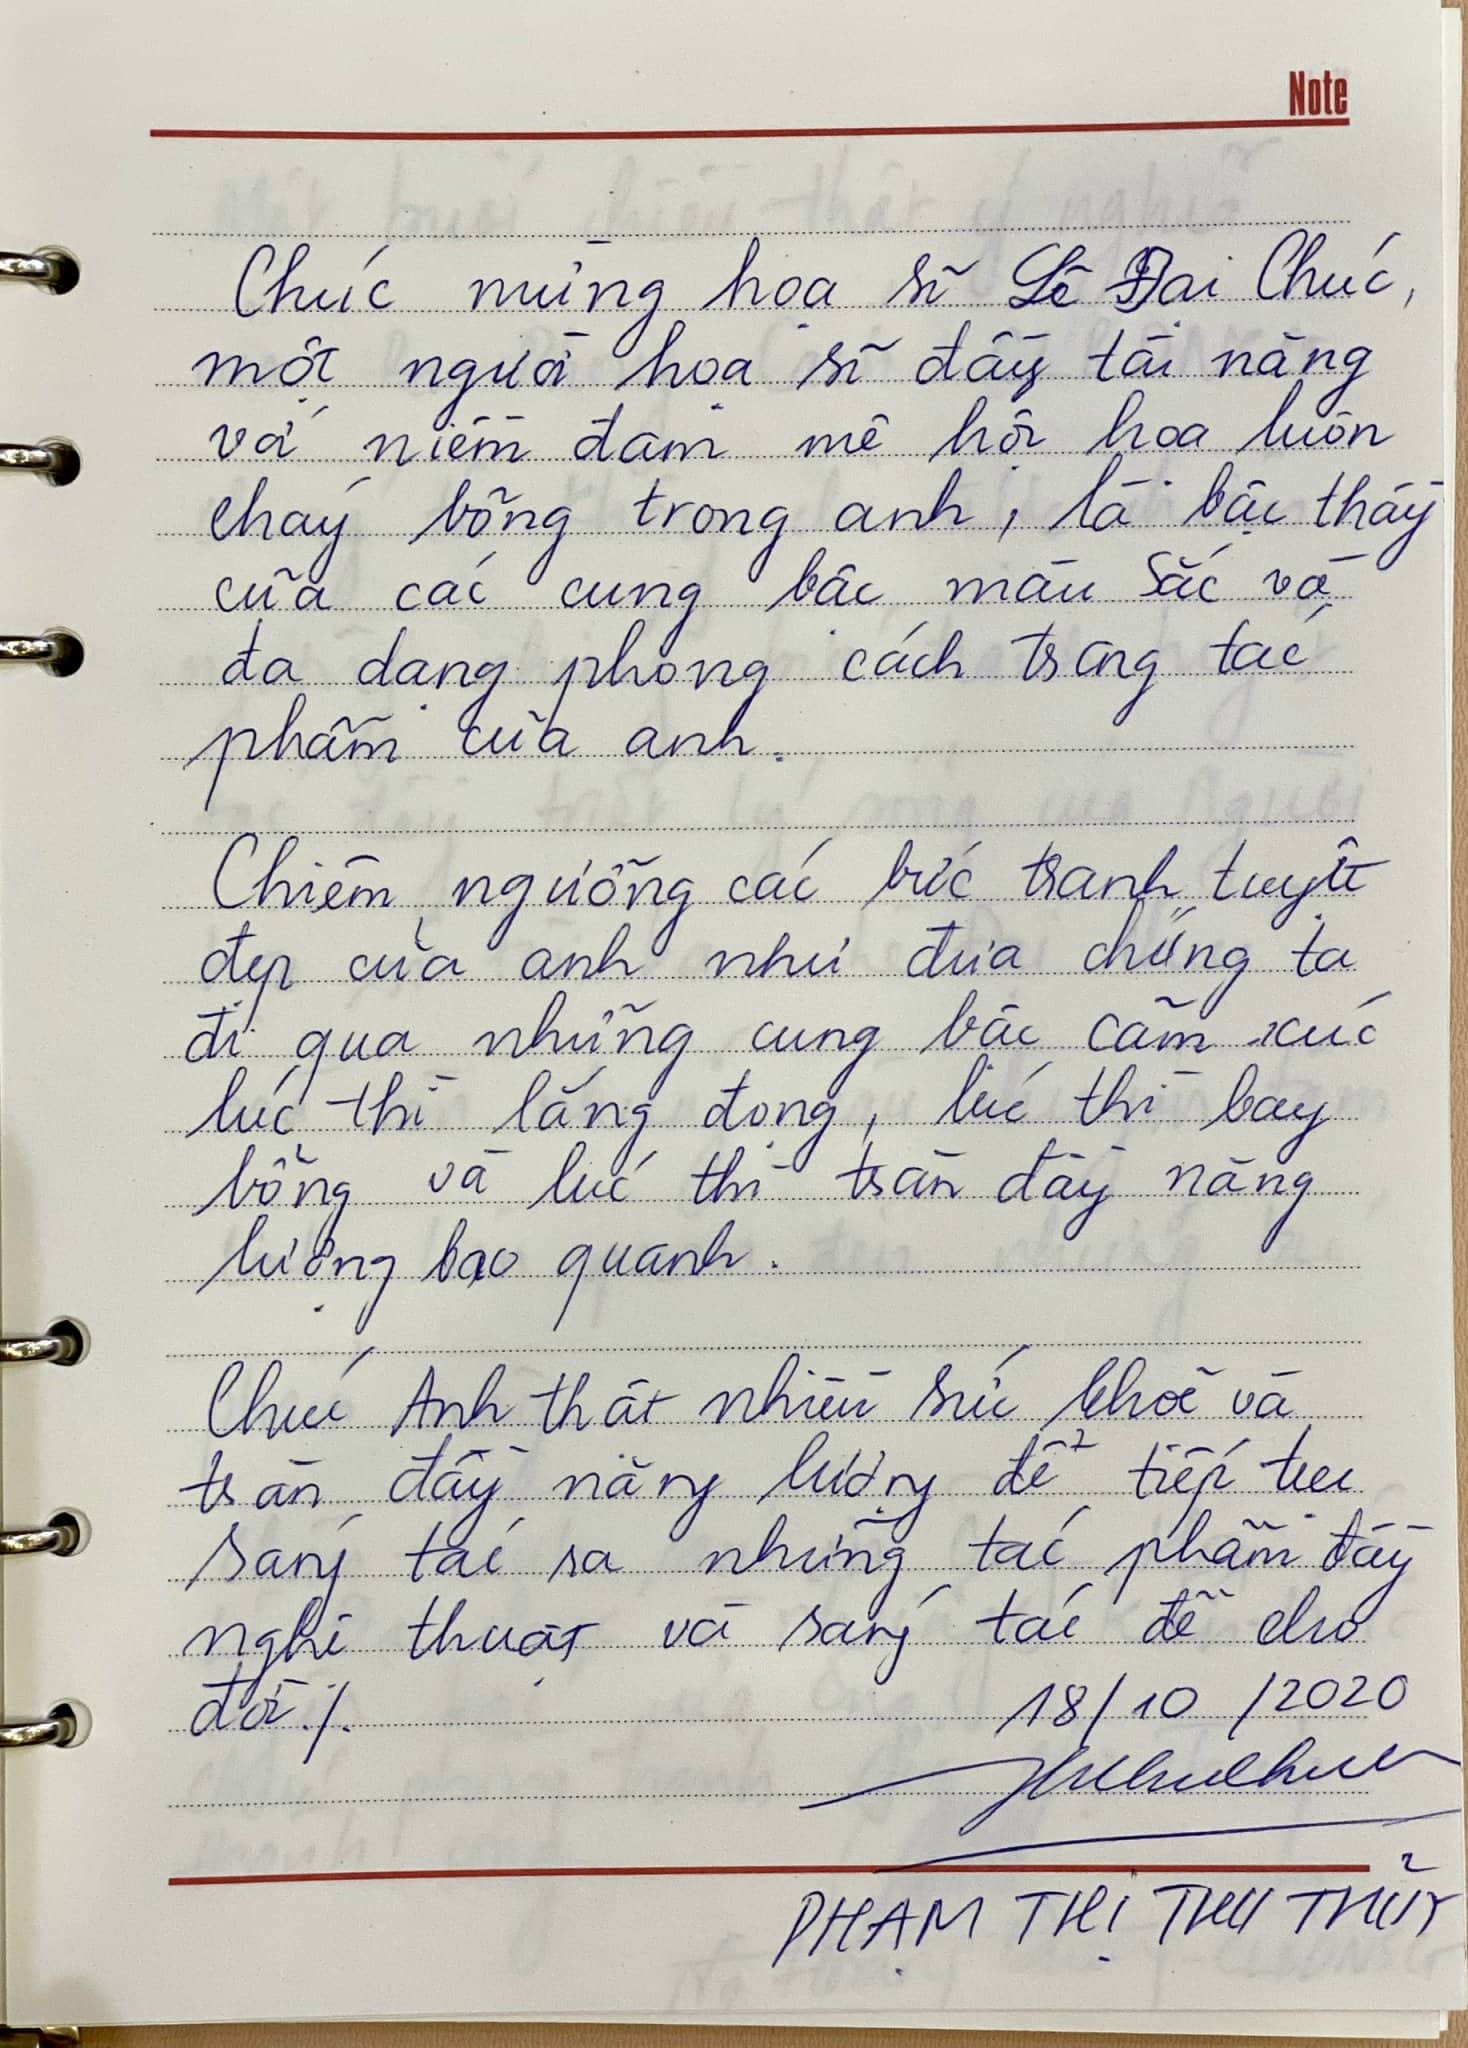 Note
Chúc mừng họa sĩ Lê Đại Chúc,
một người họa sĩ đầy tài năng
và niềm đam mê hội họa luôn
cháy bỏng trong anh, là bậc thầy
của các cung bậc màu sắc và
đa dạng phong cách trong tác
phẩm của anh.
Chiêm ngưỡng các bức tranh tuyệt
đẹp của anh như đưa chúng ta
đi qua những cung bậc cảm xúc
lúc thì lắng đọng, lúc thì bay
bổng và lúc thì tràn đầy năng
lượng bao quanh.
Chúc Anh thật nhiều sức khoẻ và
tràn đầy năng lượng để tiếp tục
sáng tác ra những tác phẩm đầy
nghệ thuật và sáng tác để cho
đời ./.
18/10/2020
PHẠM THỊ THU THỦY